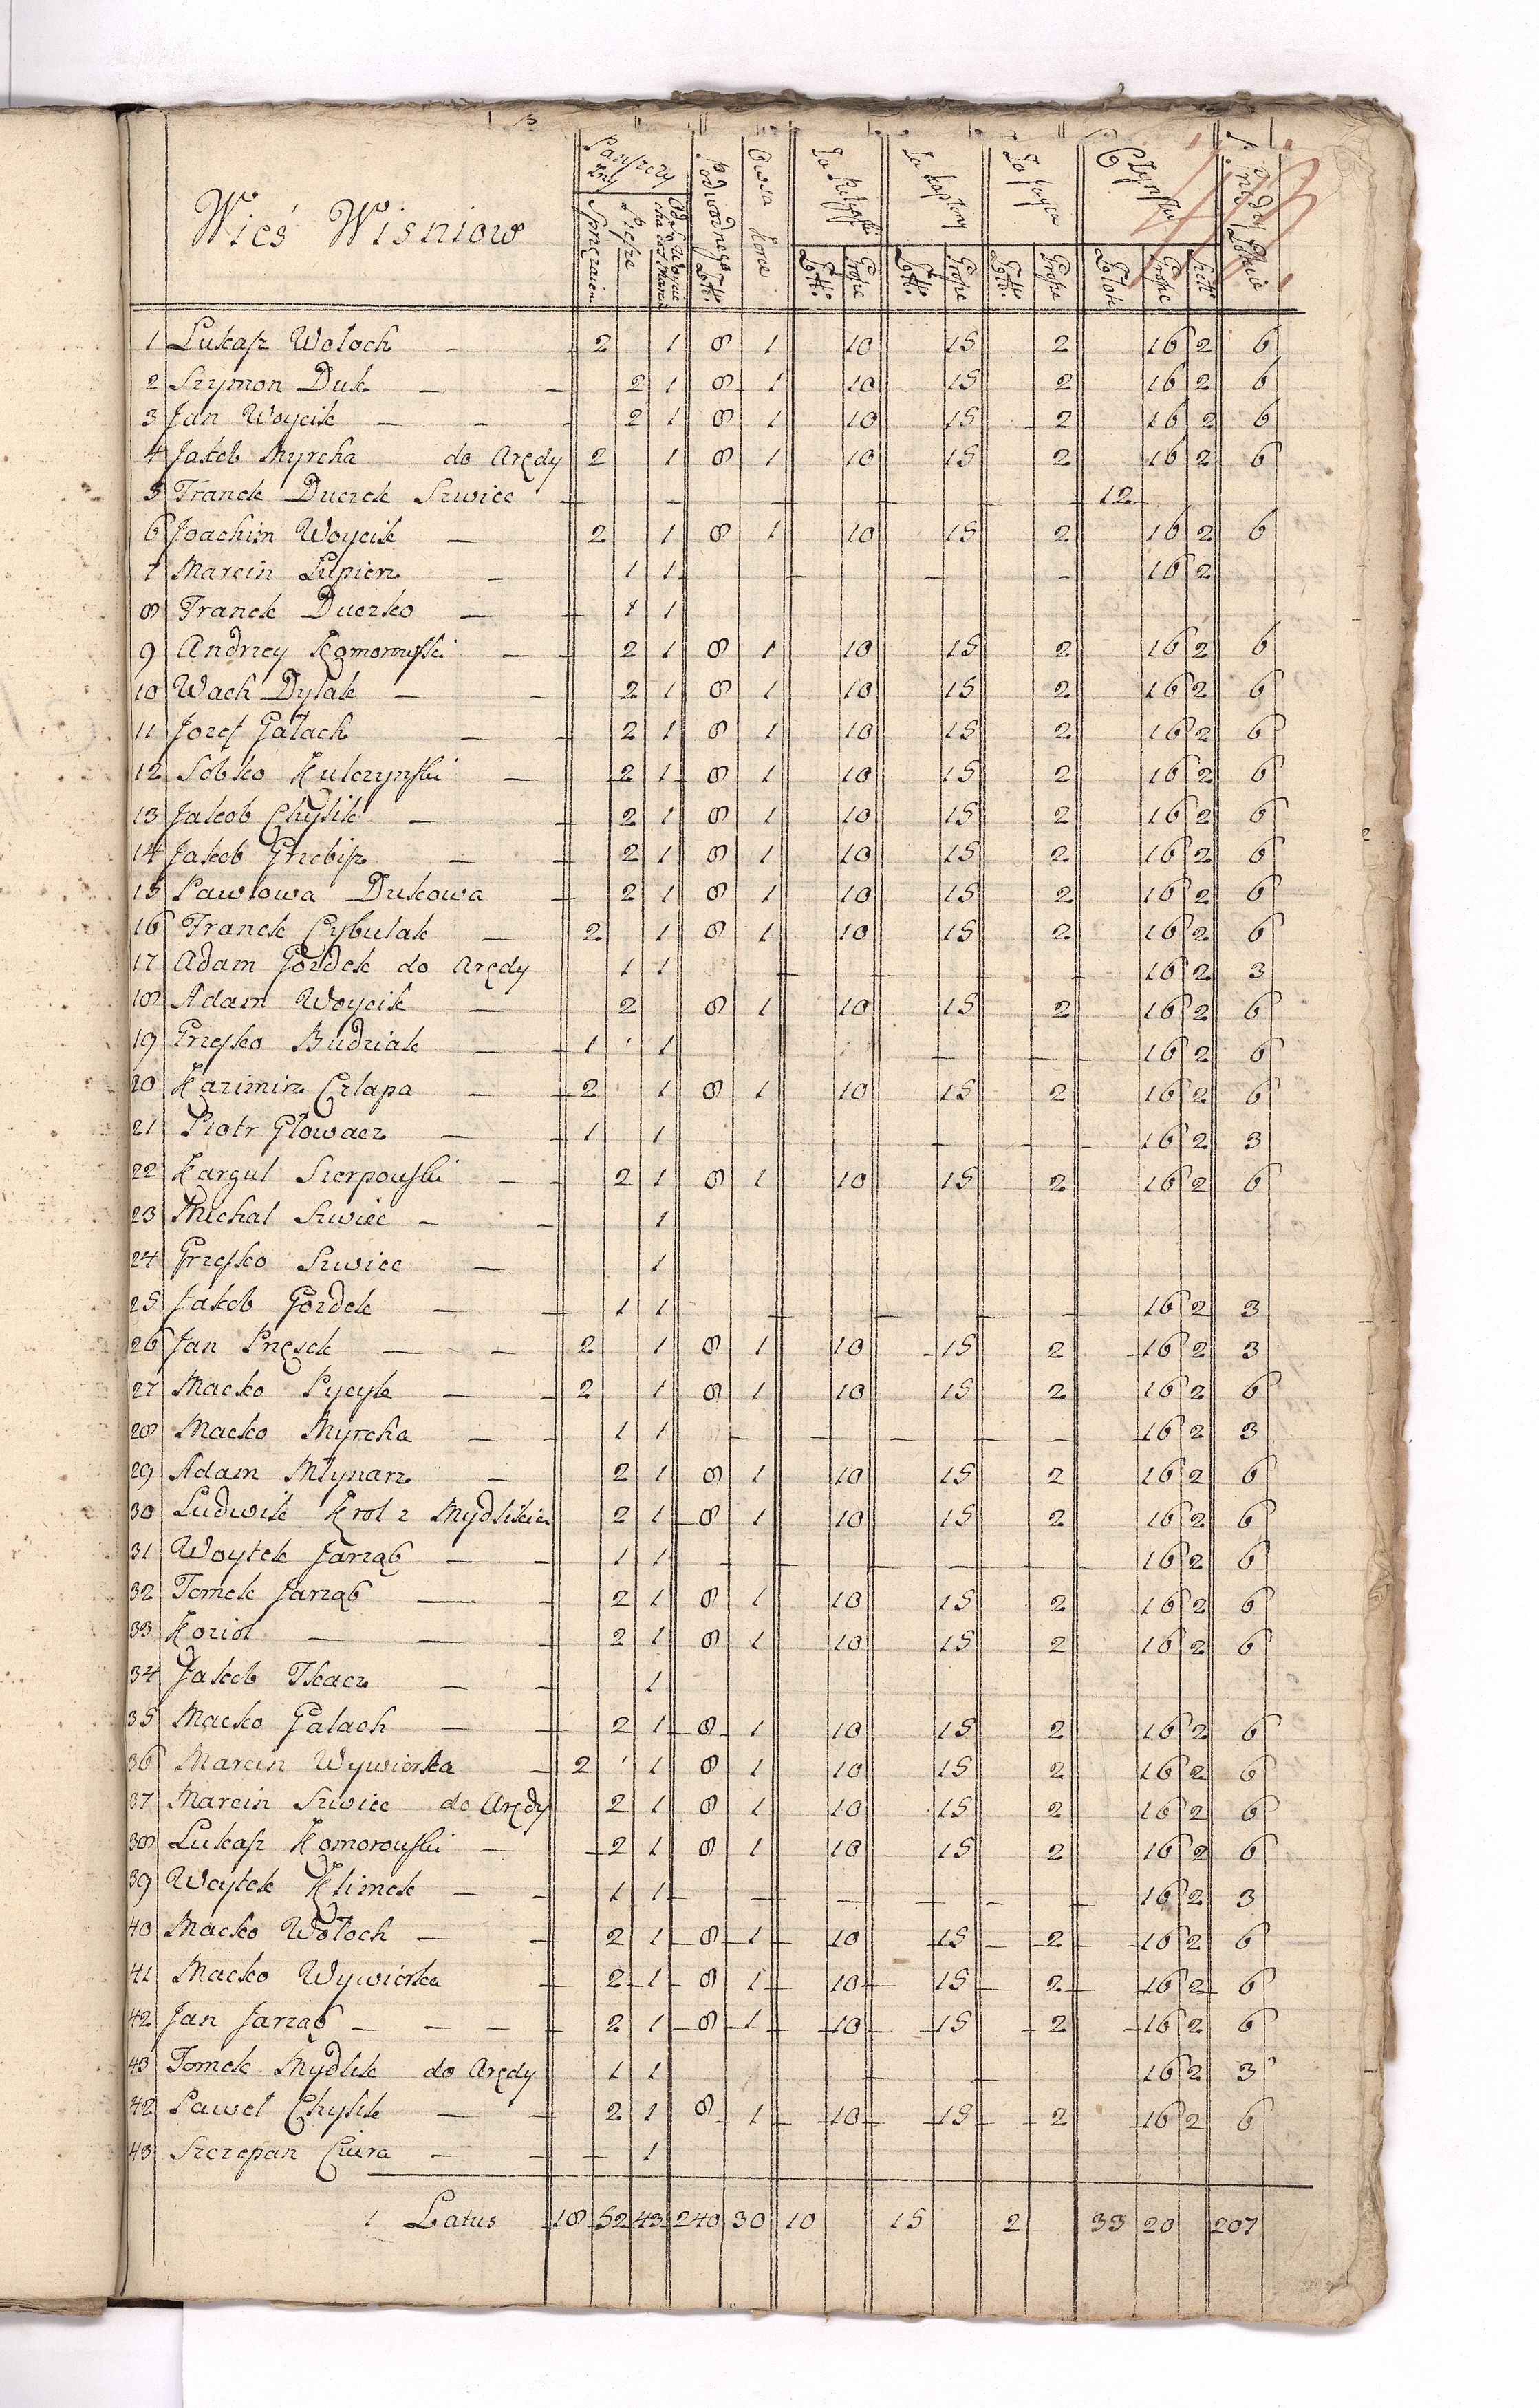 Wieś Wisniow
Panszczyzny
Podwodnego Złł:
Owsa korce
Za kapłony
Za Jayca
Czynszu
Przędzy Łokcie
Sprzężaien
Piesze
Złł: Grosze Złł: Grosze Złł: Grosze Złote Grosze
1 Lukasz Wołoch — 2 1 8 1 10 15 2 16 2 6
2 Szymon Duk — — 2 1 8 1 10 15 2 16 2 6
3 Jan Woycik — — — 2 1 8 1 10 15 2 16 2 6
4 Jakob Myrcha do Arędy 2 1 8 1 10 15 2 16 2 6
5 Franek Duczek Szwiec — 12
6 Joachim Woycik — 2 1 8 1 10 15 2 16 2 6
7 Marcin Lupierz — 1 1 16 2
8 Franek Duczko — 1 1
9 Andrzey Komorowski — 2 1 8 1 10 15 2 16 2 6
10 Wach Dylak — — 2 1 8 1 10 15 2 16 2 6
11 Jozef Gałach — — 2 1 8 1 10 15 2 16 2 6
12 Sobko Kulczynski — 2 1 8 1 10 15 2 16 2 6
13 Jakob Chylik — — 2 1 8 1 10 15 2 16 2 6
14 Jakob Grzebisz — — 2 1 8 1 10 15 2 16 2 6
15 Pawłowa Dukowa — 2 1 8 1 10 15 2 16 2 6
16 Franek Cybulak — 2 1 8 1 10 15 2 16 2 6
17 Adam Gozdek do Arędy 1 1 16 2 3
18 Adam Woycik — 2 8 1 10 15 2 16 2 6
19 Grzesko Budziak — — 1 1 16 2 6
20 Kazimirz Człapa — — 2 1 8 1 10 15 2 16 2 6
21 Piotr Głowacz — — 1 1 16 2 3
22 Kargul Szerpowski — — 2 1 8 1 10 15 2 16 2 6
23 Michal Szwiec — — 1
24 Grzesko Szwiec — 1
25 Jakob Gozdek — — 1 1 16 2 3
26 Jan Pręsek — — 2 1 8 1 10 15 2 16 2 3
27 Macko Pycyk — — 2 1 8 1 10 15 2 16 2 6
28 Macko Myrcha — — 1 1 16 2 3
29 Adam Młynarz — 2 1 8 1 10 15 2 16 2 6
30 Ludwik Krol z 2 1 8 1 10 15 2 16 2 6
31 Woytek Jarząb — — 1 1 16 2 6
32 Tomek Jarząb — — 2 1 8 1 10 15 2 16 2 6
33 Kozioł — — — 2 1 8 1 10 15 2 16 2 6
34 Jakob Tkacz — — 1
35 Macko Galach — — 2 1 8 1 10 15 2 16 2 6
36 Marcin Wywiorka — 2 1 8 1 10 15 2 16 2 6
37 Marcin Szwiec do Arędy 2 1 8 1 10 15 2 16 2 6
38 Lukasz Komorowski — 2 1 8 1 10 15 2 16 2 6
39 Woytek Klimek — — 1 1 16 2 3
40 Macko Wołoch — — 2 1 8 1 10 15 2 16 2 6
41 Macko Wywiorka — 2 1 8 1 10 15 2 16 2 6
42 Jan Jarząb — — — — 2 1 8 1 10 15 2 16 2 6
43 Tomek Mydlik do Arędy 1 1 16 2 3
42 Paweł Chylik — — 2 1 8 1 10 15 2 16 2 6
43 Szczepan Ciura — — 1
1 Latus 18 52 43 240 30 10 15 2 33 20 207